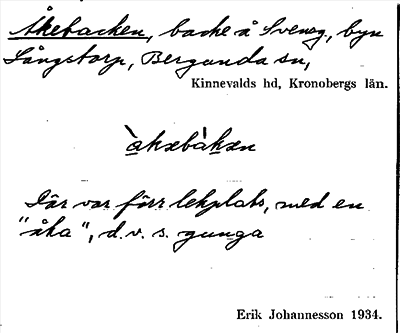 Åkebacken, backe å Sveneg, byn
Långstorp, Bergunda sn,
Kinnevalds hd, Kronobergs län.
àkəbàkən
Där var förr lekplats, med en
"åka", d.v.s. gunga
Erik Johannesson 1934.